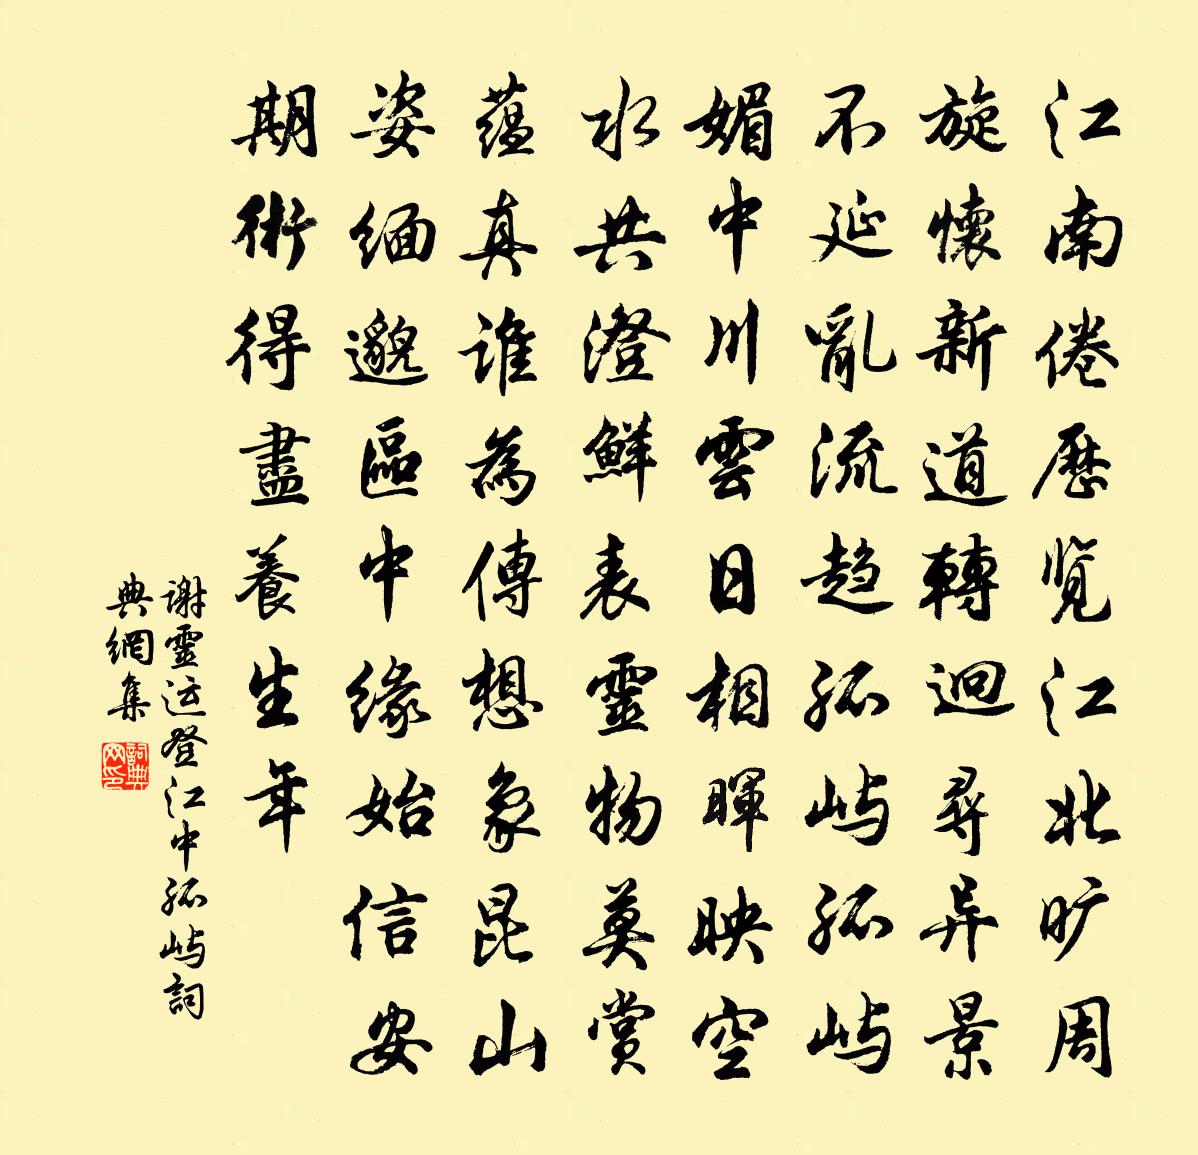 江南倦歷览江北旷周
旋懷新道轉迥尋异景
不延亂流趋孤屿孤屿
媚中川雲日相暉映空
水共澄鮮表靈物莫赏
蕴真谁為傳想象昆山
姿缅邈區中缘始信安
期術得盡養生年
谢靈运登江中孤屿詞
典網集
詞典
网印